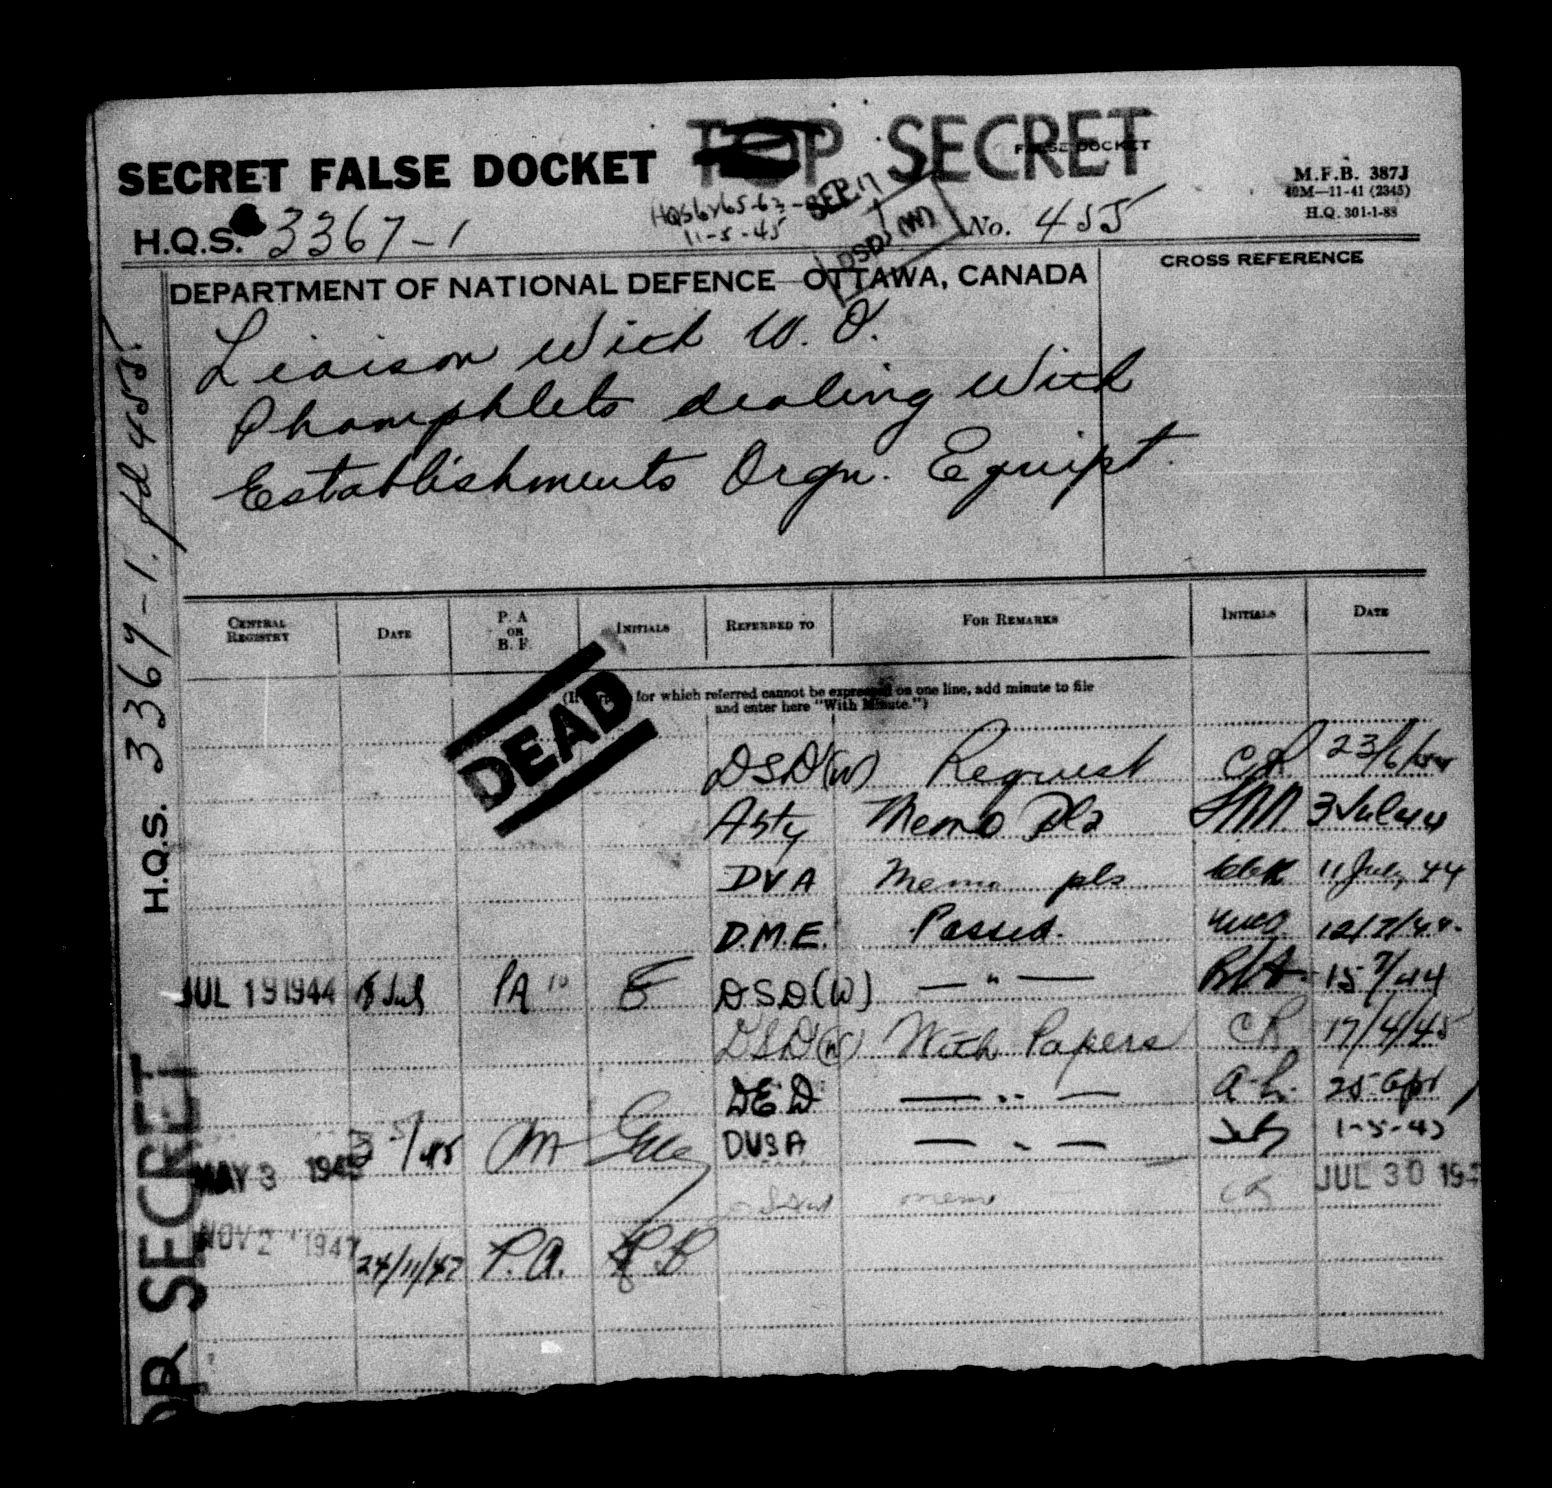 TOP SECRET
SECRET FALSE DOCKET
FALSE DOCKET
M.F.B. 387J
40M—11-41 (2345)
H.Q. 301-1-88
H.Q.S. 3367-1
11-5-45
SEP 17
DSD (W)
No. 455
DEPARTMENT OF NATIONAL DEFENCE—OTTAWA, CANADA
CROSS REFERENCE
Liaison With W. O.
Phamphlets dealing With
Establishments Orgn. Equipt.
H.Q.S. 3367-1. fd 455.
CENTRAL REGISTRY DATE P. A OR B. F. INITIALS REFERRED TO FOR REMARKS INITIALS DATE
for which referred cannot be expressed on one line, add minute to file
and enter here "With Minute.")
DEAD
DSD(W) Request CR 23/6/
Asty Memo pls 3 Jul 44
DVA Memo pls 11 July 44
D.M.E. Passed. 12/7/44.
JUL 19 1944 18 Jul PA E DSD(W) — " — 15 7/44
DSD(W) With Papers CR 17/4/45
DED — " — a-h. 25 Apr
MAY 3 1945 3 5/45 DVSA — " — 1-5-45
memo CR JUL 30 194
NOV 2 1947 24/11/47 P.A.
TOP SECRET